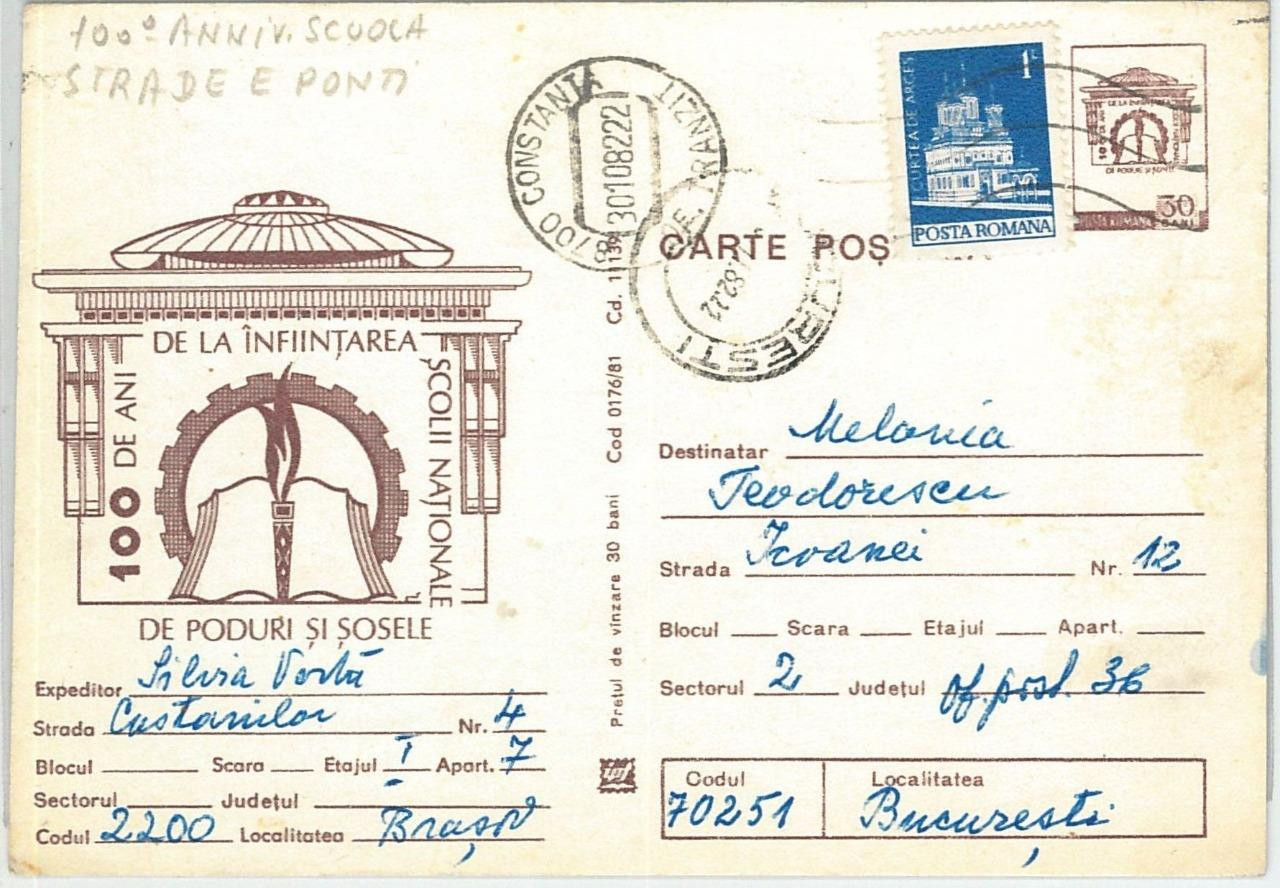 100º ANNIV. SCUOLA
STRADE E PONTI
8700 CONSTANȚA
TRANZIT
3010 8222
CURTEA DE ARGEȘ
1L
POSTA ROMANA
DE LA ÎNFIINȚAREA
100 DE ANI
DE PODURI ȘI ȘOSELE
30
BANI
CARTE POȘ
DE LA ÎNFIINȚAREA
100 DE ANI
ȘCOLII NAȚIONALE
DE PODURI ȘI ȘOSELE
Expeditor Silvia
Strada Castanilor Nr. 4
Blocul Scara Etajul I Apart. 7
Sectorul Județul
Codul 2200 Localitatea Brașov
Prețul de vînzare 30 bani Cod 0176/81
Destinatar Melania
Teodorescu
Strada Icoanei Nr. 12
Blocul Scara Etajul Apart.
Sectorul 2 Județul of. post. 36
Codul Localitatea
70251 București